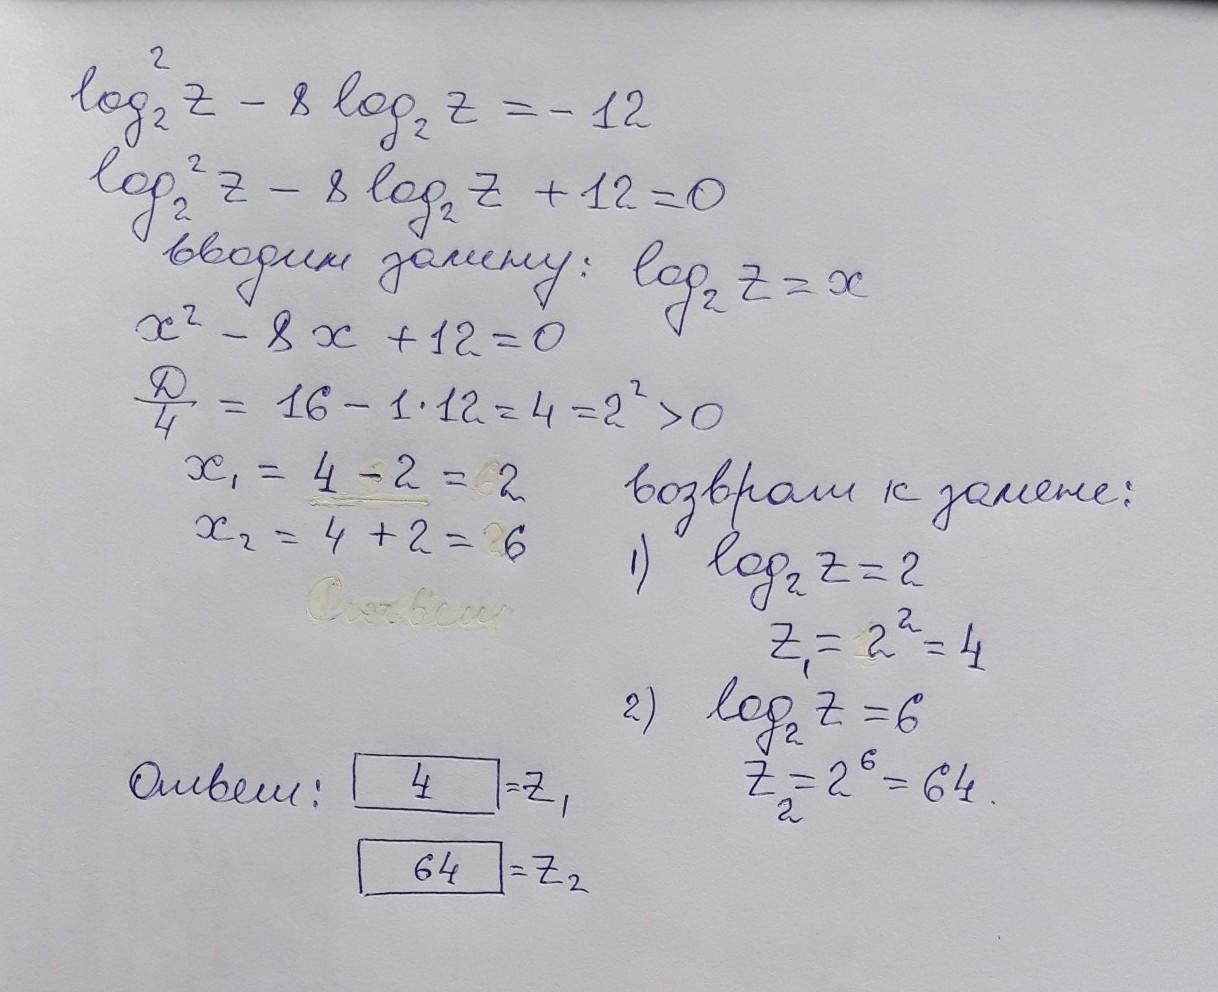 log₂² z − 8 log₂ z = − 12
log₂² z − 8 log₂ z + 12 = 0
вводим замену: log₂ z = x
x² − 8x + 12 = 0
D/4 = 16 − 1·12 = 4 = 2² > 0
x₁ = 4 − 2 = 2
x₂ = 4 + 2 = 6
возврат к замене:
1) log₂ z = 2
z₁ = 2² = 4
2) log₂ z = 6
z₂ = 2⁶ = 64.
Ответ: 4 = z₁
64 = z₂